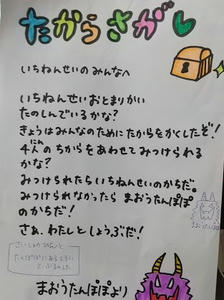 たからさがし
いちねんせいの みんなへ
いちねんせいおとまりかい
たのしんでいるかな?
きょうはみんなのためにたからをかくしたぞ!
4人のちからをあわせてみつけられる
にん
かな?
みつけられたらいちねんせいのかちだ。
みつけられなかったら まおうたんぽぽ
のかちだ!
さぁ、わたしとしょうぶだ!
さいしょの
まおうたんぽぽより